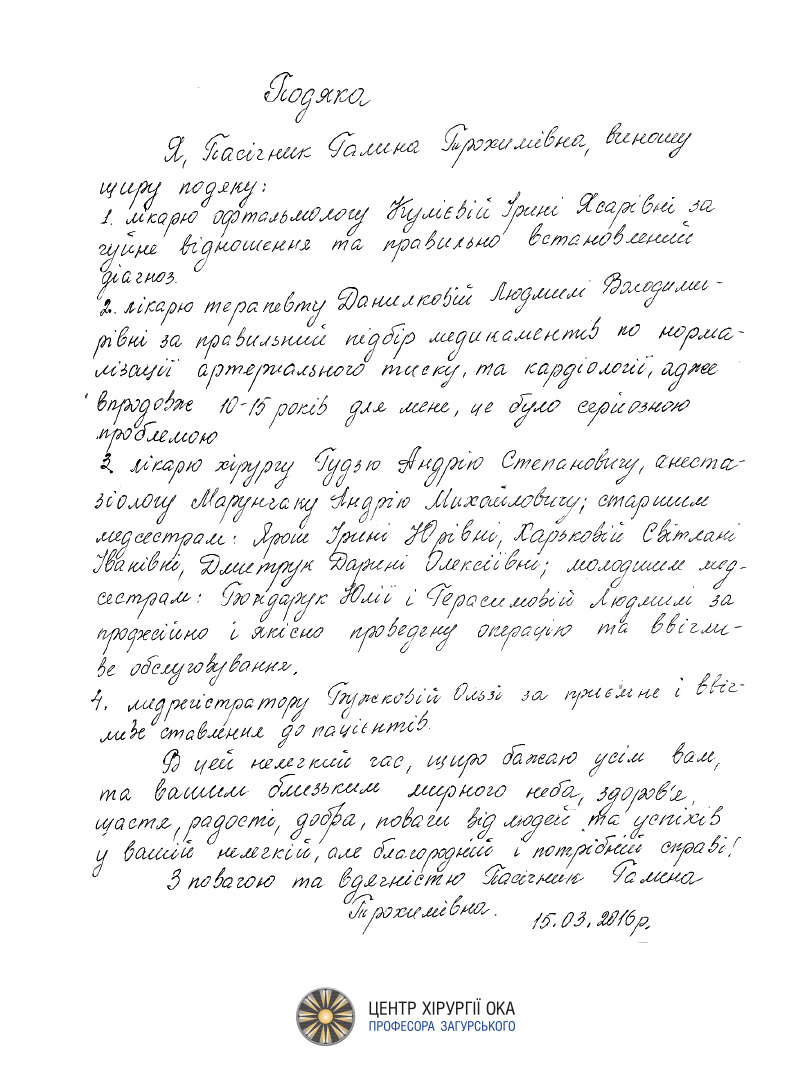 Подяка
Я, Пасічник Галина Трохимівна, виношу
щиру подяку:
1. лікарю офтальмологу Кулієвій Ірині Ясарівні за
чуйне відношення та правильно встановлений
діагноз.
2. лікарю терапевту Данилковій Людмилі Володими-
рівні за правильний підбір медикаментів по норма-
лізації артериального тиску, та кардіології, адже
впродовж 10-15 років для мене, це було серйозною
проблемою
3. лікарю хірургу Гудзю Андрію Степановичу, анеста-
зіологу Марунчаку Андрію Михайловичу; старшим
медсестрам: Ярош Ірині Юрівні, Харьковій Світлані
Іванівні, Дмитрук Дарині Олексіївні; молодшим мед-
сестрам: Бондарук Юлії і Герасимовій Людмилі за
професійно і якісно проведену операцію та ввічли-
ве обслуговування.
4. медрегістратору Бужковій Ользі за приємне і ввіч-
ливе ставлення до пацієнтів.
В цей нелегкий час, щиро бажаю усім вам,
та вашим близьким мирного неба, здоров'я,
щастя, радості, добра, поваги від людей та успіхів
у вашій нелегкій, але благородній і потрібній справі!
З повагою та вдячністю Пасічник Галина
Трохимівна.
15.03.2016р.
ЦЕНТР ХІРУРГІЇ ОКА
ПРОФЕСОРА ЗАГУРСЬКОГО